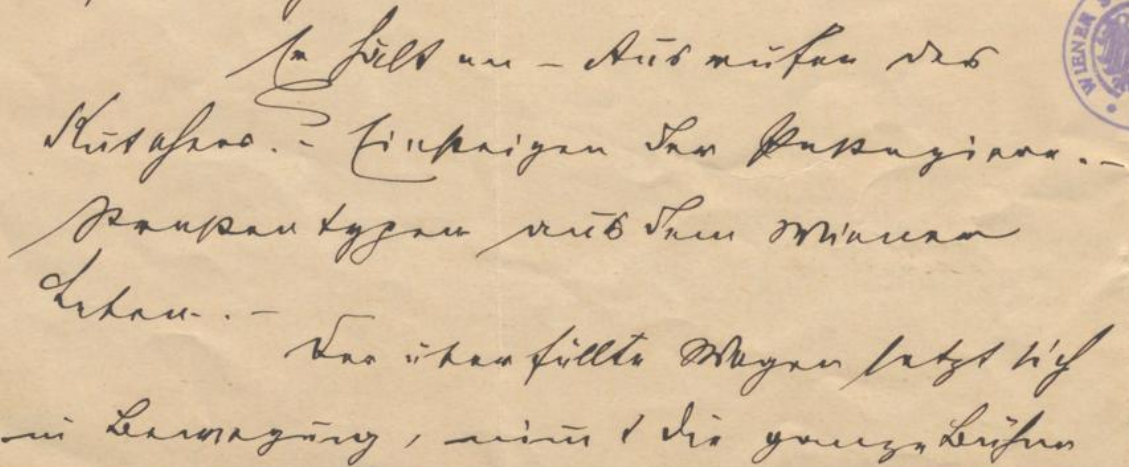 Er hält an – Ausrufen des
Kutschers. – Einsteigen der Passagiere. –
Straßentypen aus dem Wiener
Leben. –
Der überfüllte Wagen setzt sich
in Bewegung, nim̄t die ganze Bühne
WIENER